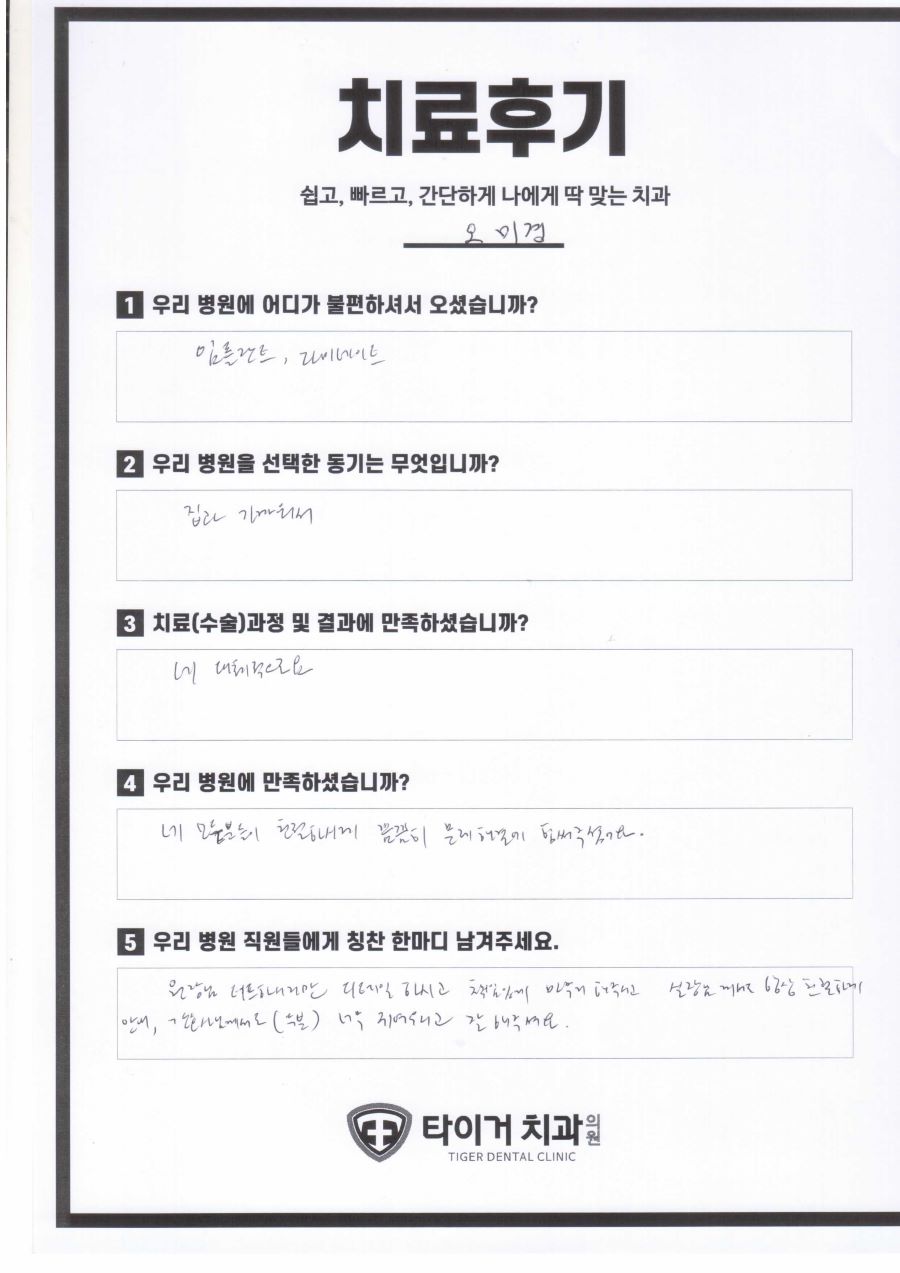 치료후기
쉽고, 빠르고, 간단하게 나에게 딱 맞는 치과
오미경
1 우리 병원에 어디가 불편하셔서 오셨습니까?
임플란트, 라미네이트
2 우리 병원을 선택한 동기는 무엇입니까?
집과 가까워서
3 치료(수술)과정 및 결과에 만족하셨습니까?
네 대체적으로요
4 우리 병원에 만족하셨습니까?
네 모든분들이 친절하시게 꼼꼼히 문제해결에 힘써주셨어요.
5 우리 병원 직원들에게 칭찬 한마디 남겨주세요.
원장님 디테일 하시고 책임있게 해주시고 실장님께서도 항상 친절하게
안내, (모두) 너무 잘 해주셔요.
타이거 치과의원
TIGER DENTAL CLINIC